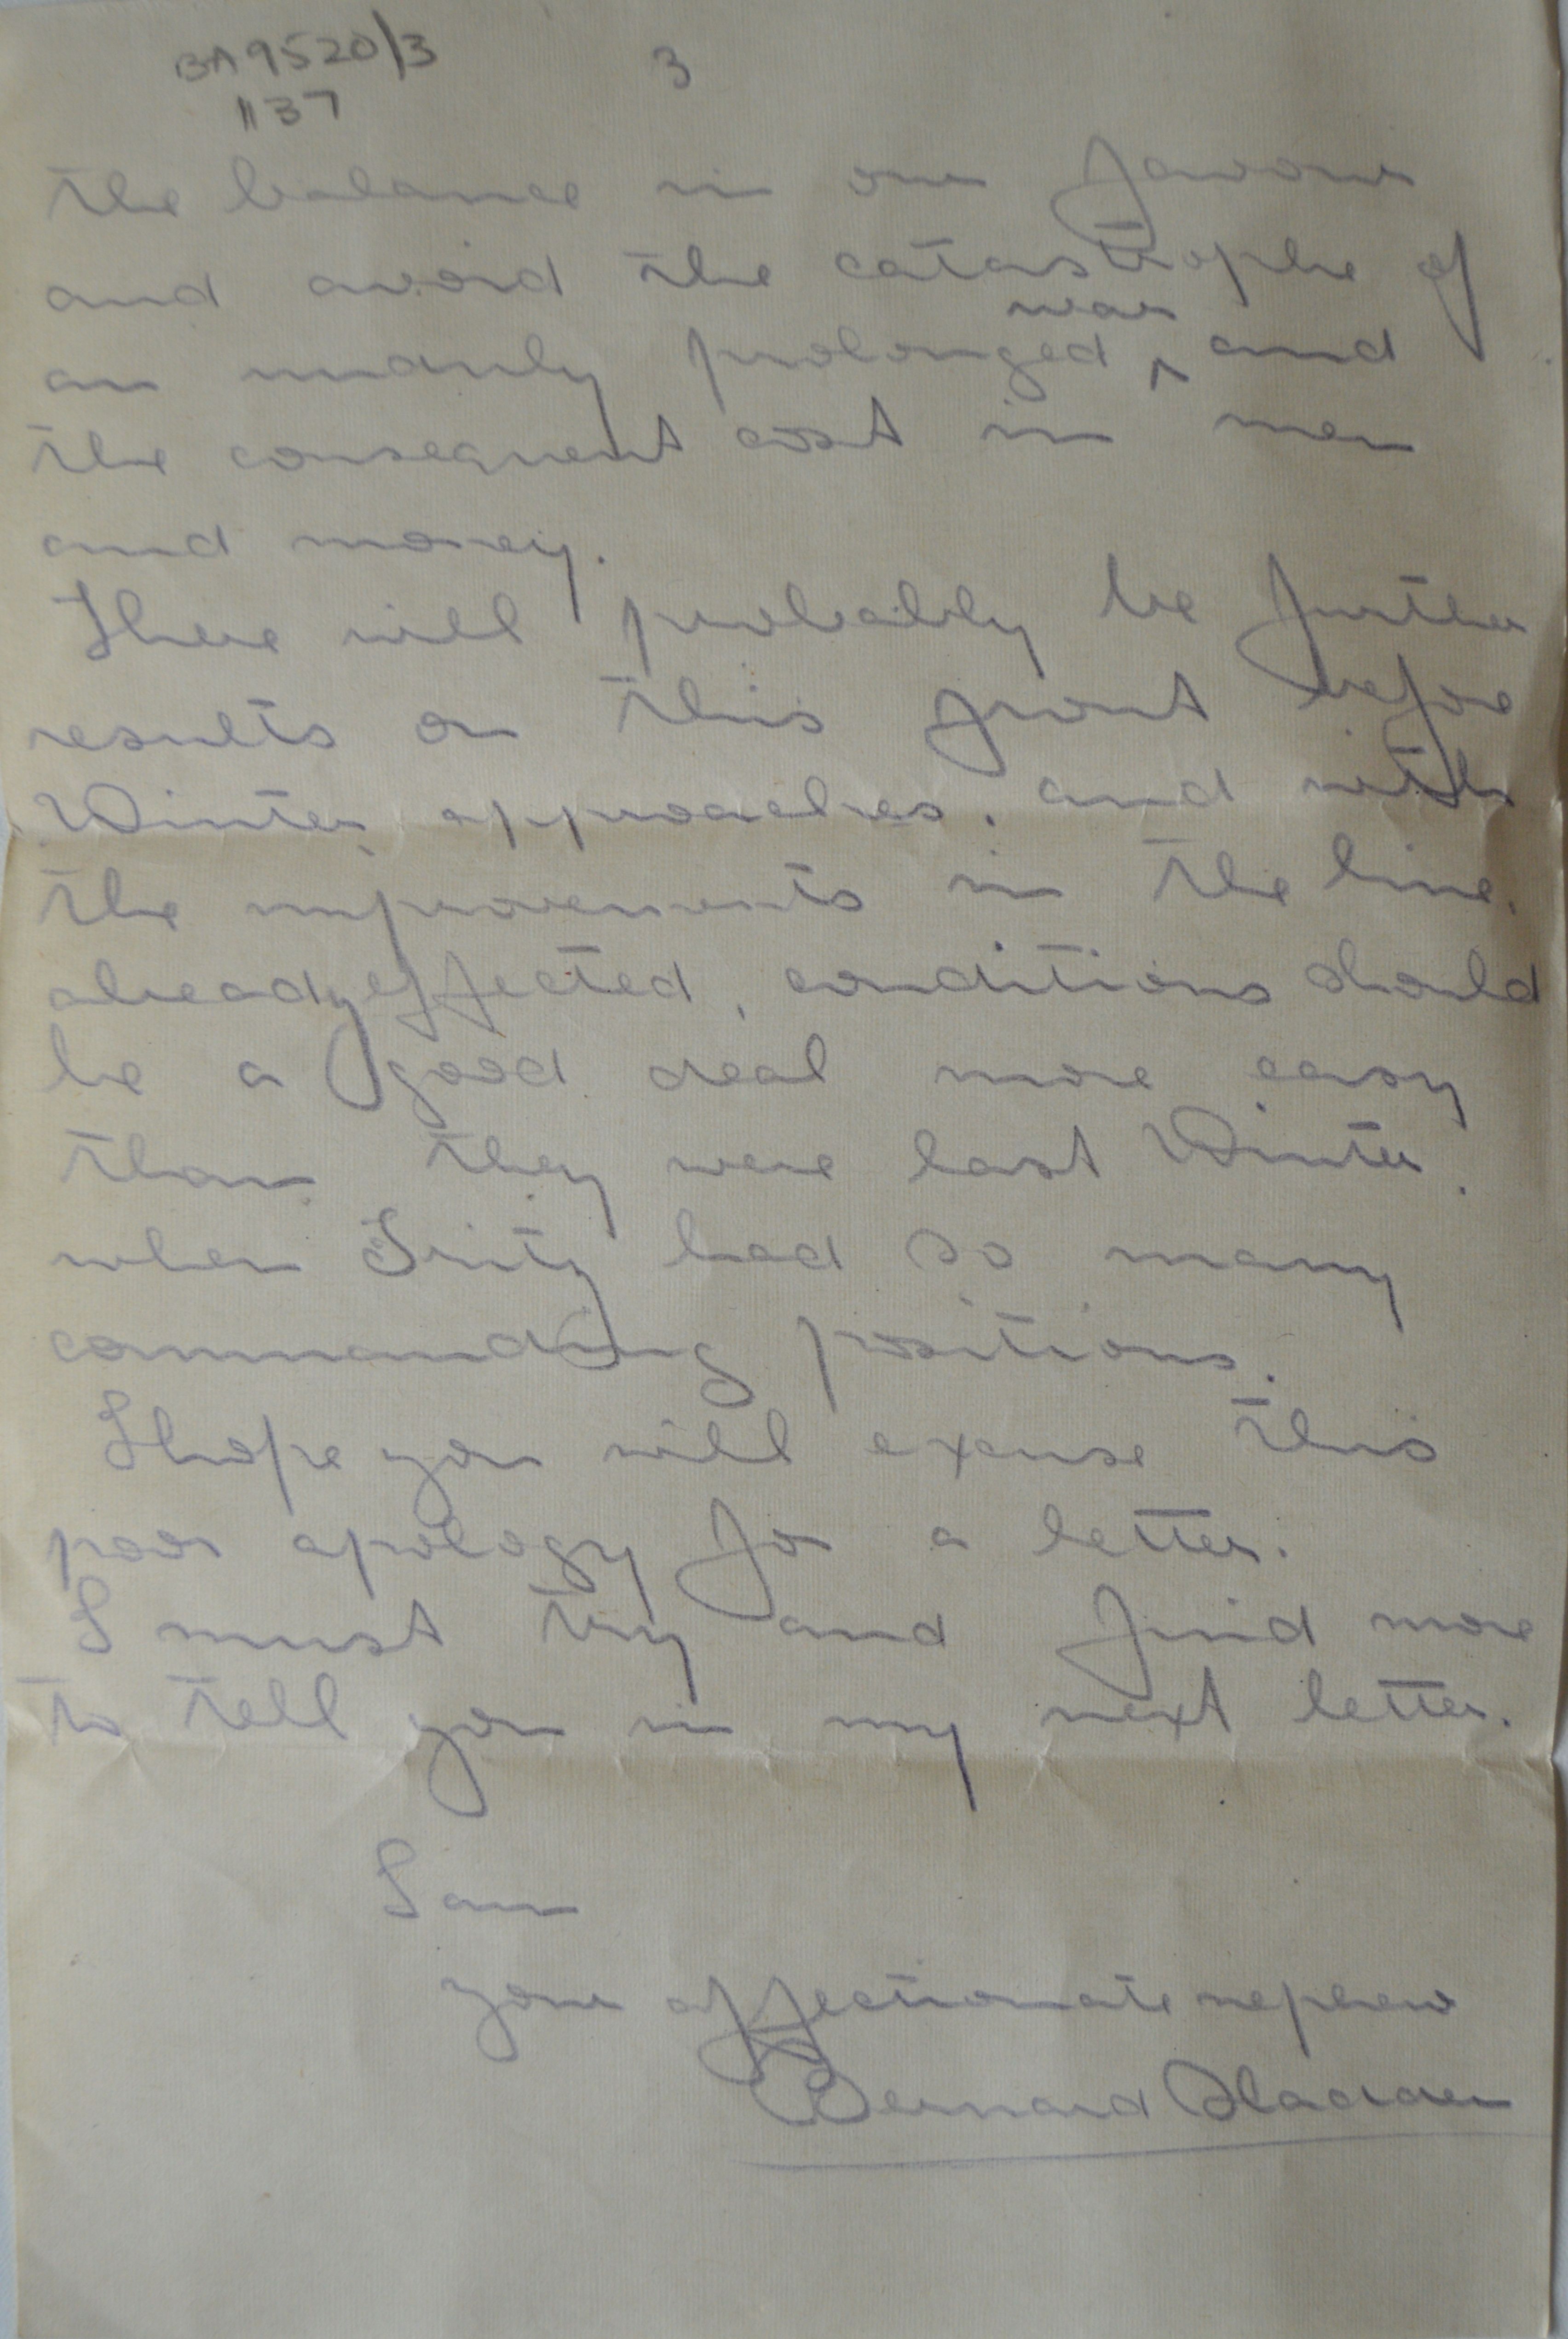 BA9520/3
1137
3
the balance in our favour
and avoid the catastrophe of
an unduly prolonged ^war and
the consequent cost in men
and money.
There will probably be further
results on this front before
Winter approaches. and with
the improvements in the line.
already effected, conditions should
be a good deal more easy
than they were last Winter.
when Fritz had so many
commanding positions.
I hope you will excuse this
poor apology for a letter.
I must try and find more
to tell you in my next letter.
I am
your affectionate nephew
Bernard